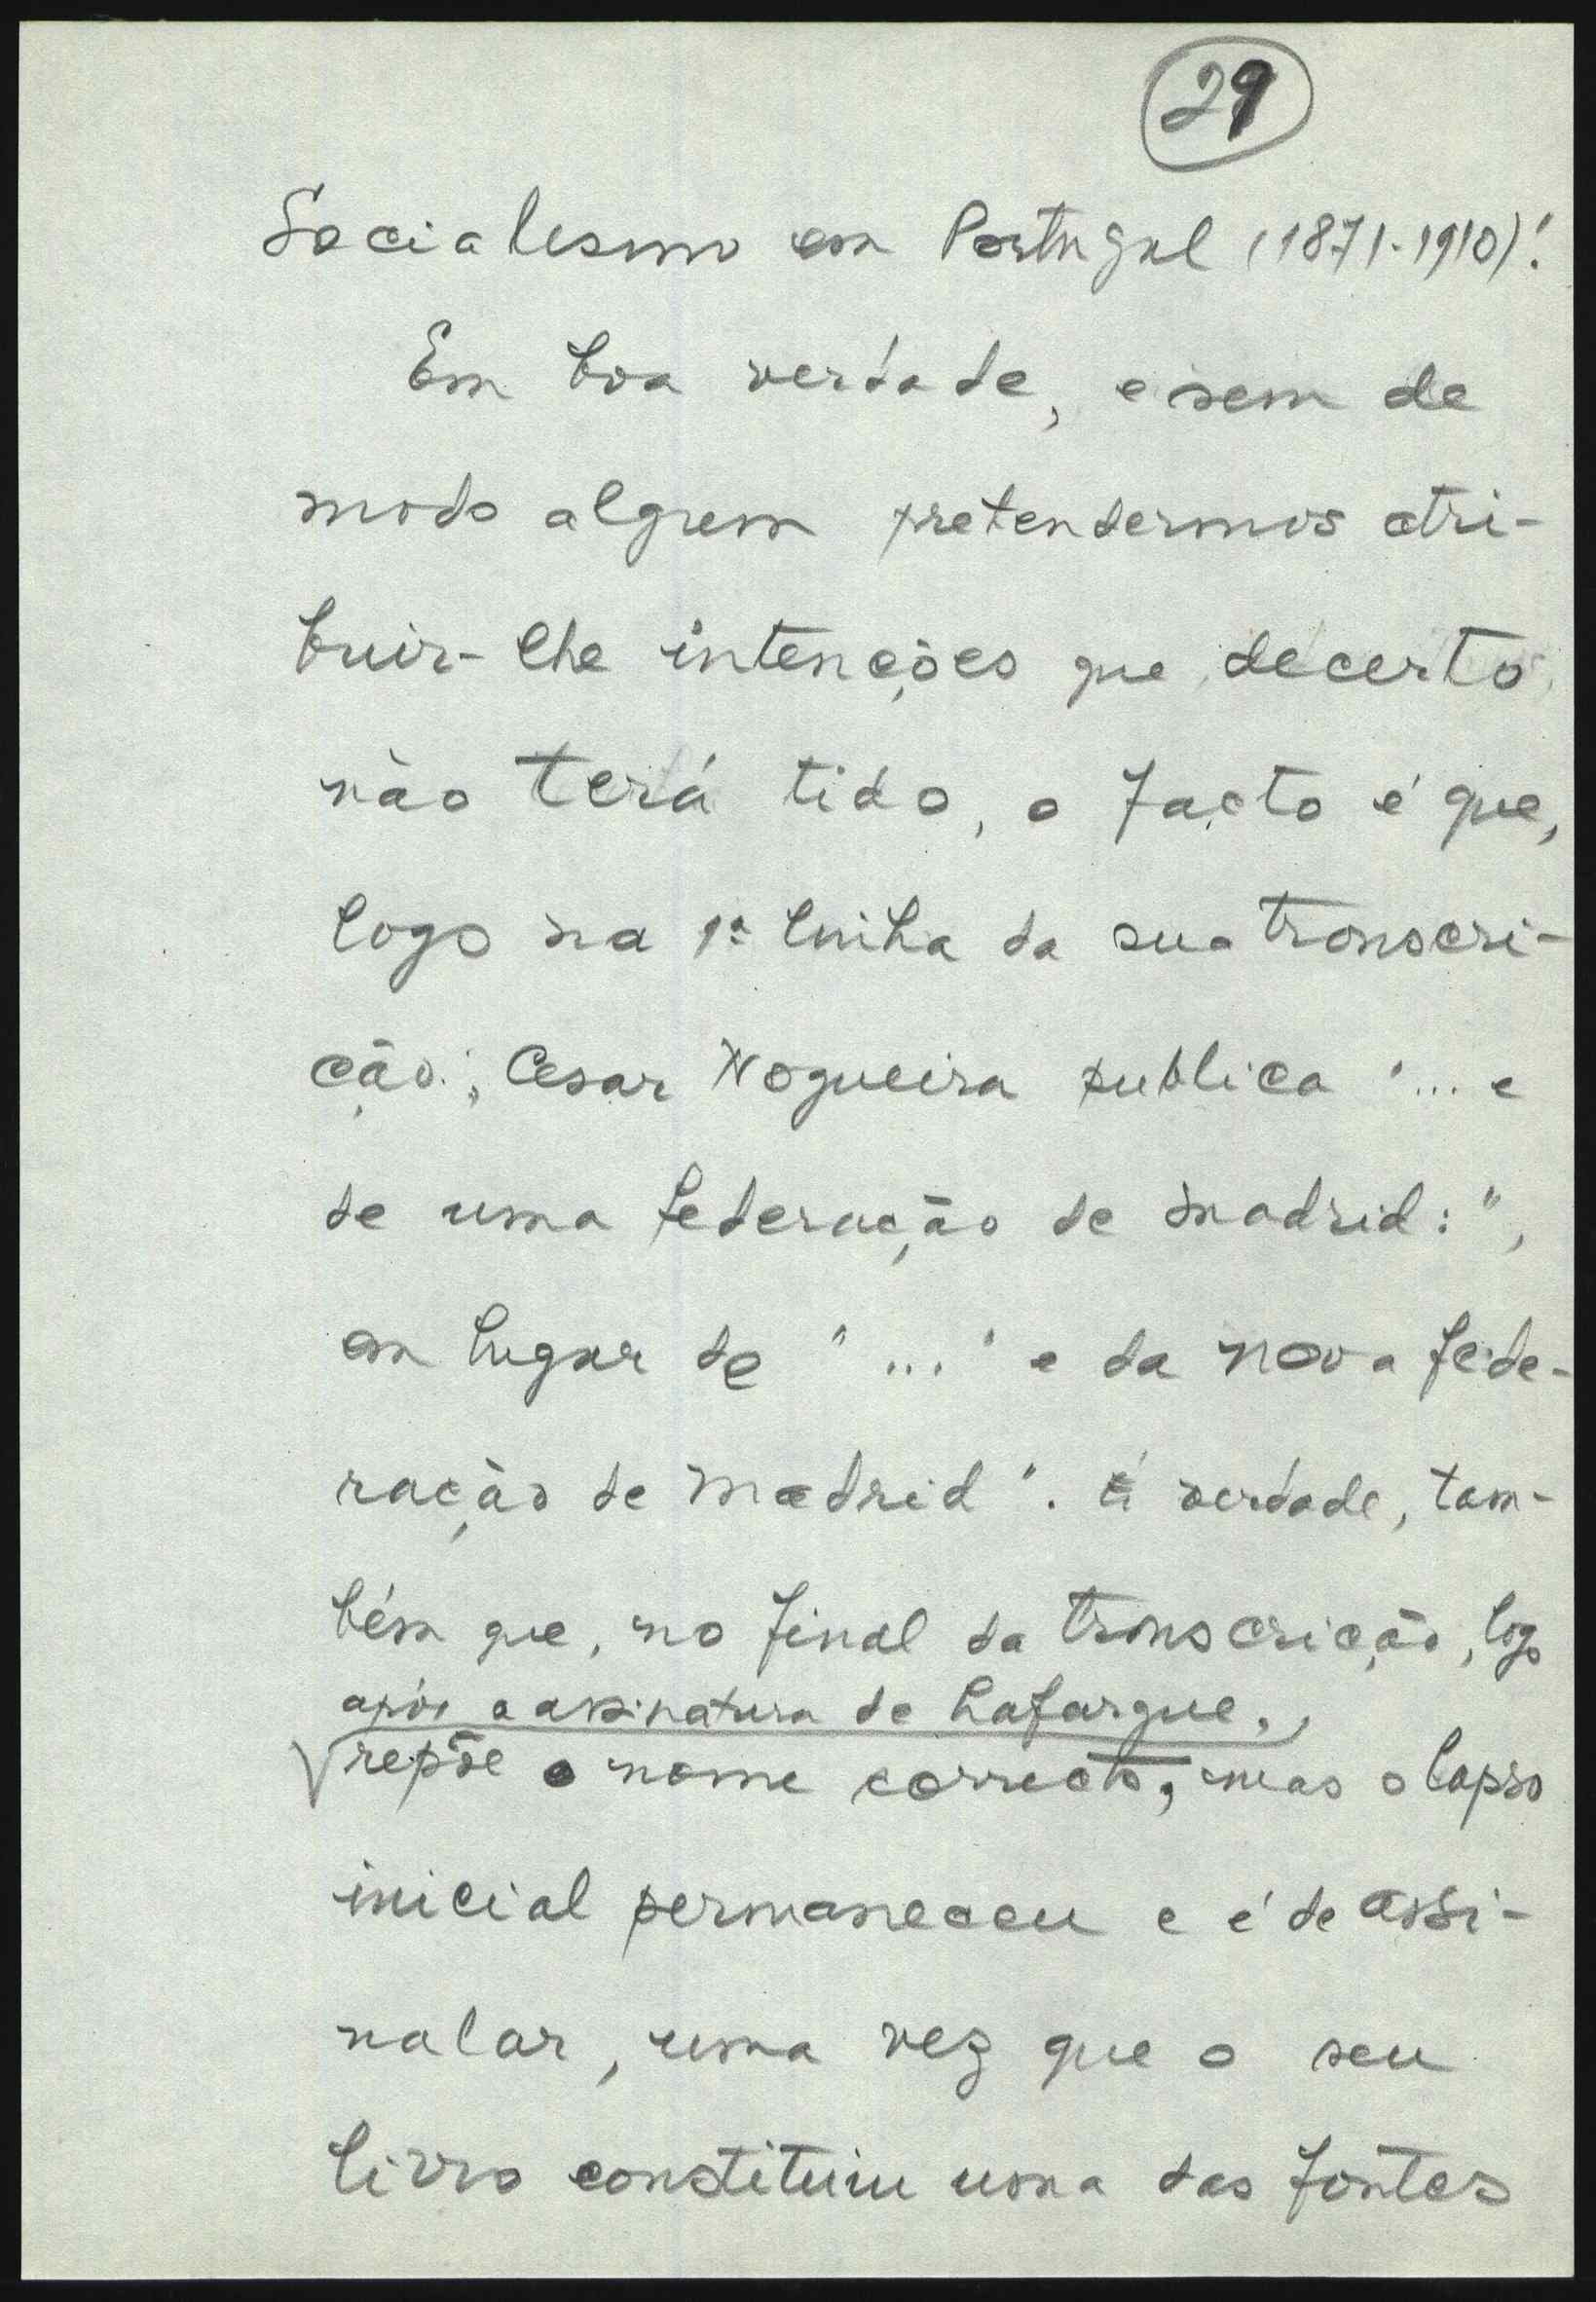 29
Socialismo em Portugal (1871-1910)".
Em boa verdade, e sem de
modo algum pretendermos atri-
buir-lhe intenções que decerto
não terá tido, o facto é que,
logo na 1ª linha da sua transcri-
ção, Cesar Nogueira publica "... e
de uma federação de Madrid:",
em lugar de "... e da nova fede-
ração de Madrid". É verdade, tam-
bém que, no final da transcrição, logo
após a assinatura de Lafargue,
repõe o nome correcto, mas o lapso
inicial permaneceu e é de assi-
nalar, uma vez que o seu
livro constituiu uma das fontes